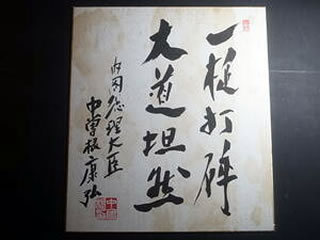 一槌打砕
大道坦然
内閣総理大臣
中曽根康弘